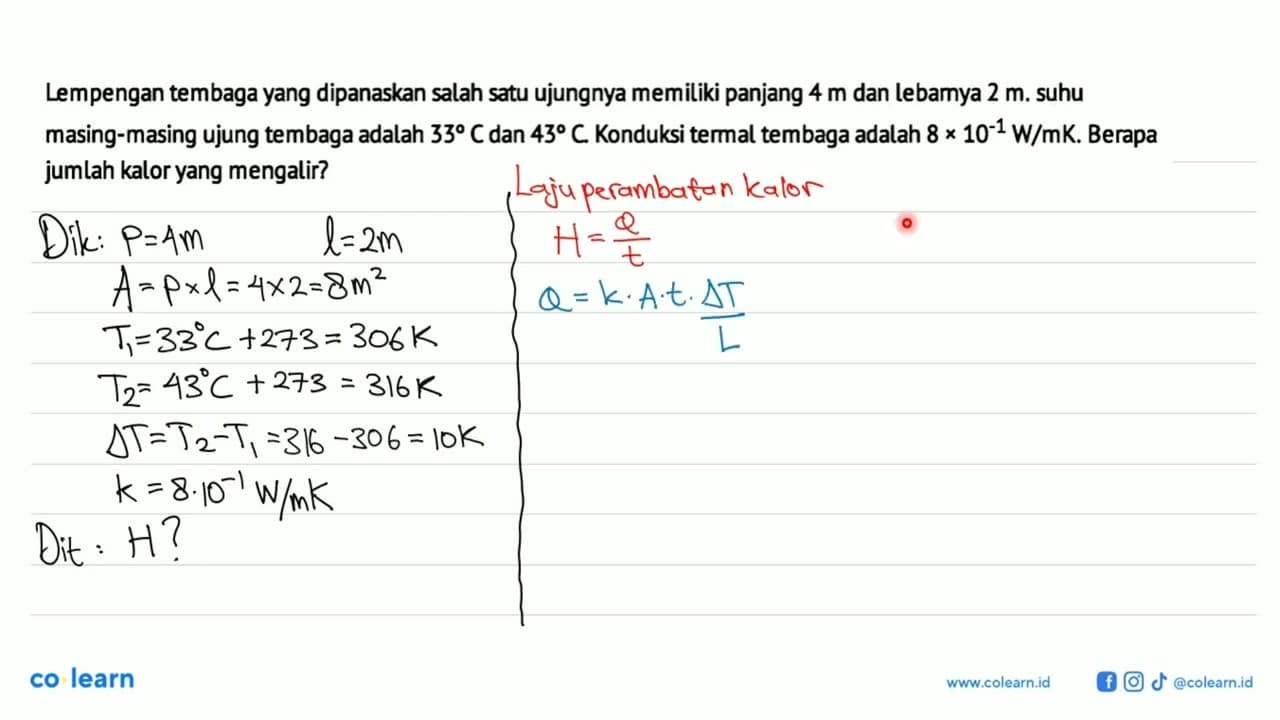 Lempengan tembaga yang dipanaskan salah satu ujungnya memiliki panjang 4 m dan lebarnya 2 m. suhu
masing-masing ujung tembaga adalah 33° C dan 43° C. Konduksi termal tembaga adalah 8 × 10⁻¹ W/mK. Berapa
jumlah kalor yang mengalir?
Dik: P=4m l=2m
A = p×l = 4×2 = 8m²
T₁=33°C +273 = 306K
T₂= 43°C + 273 = 316K
ΔT=T₂-T₁ =316 -306 = 10K
k = 8.10⁻¹ W/mK
Dit : H?
Laju perambatan kalor
H = Q/t
Q = k . A . t . ΔT/L
co learn
www.colearn.id
@colearn.id